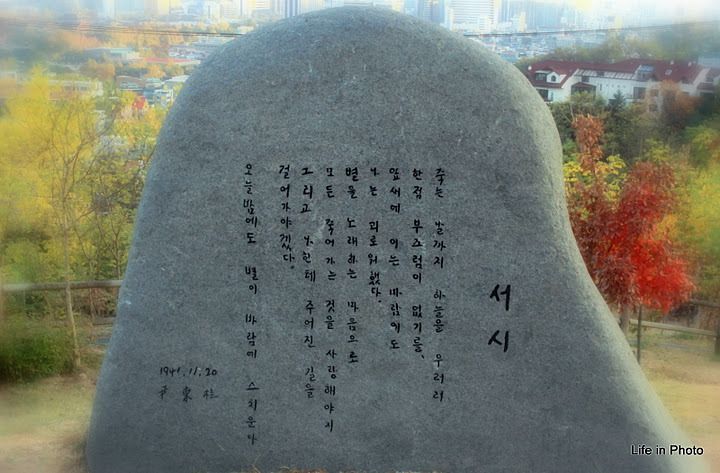 서시
죽는 날까지 하늘을 우러러
한점 부끄럼이 없기를,
잎새에 이는 바람에도
나는 괴로워했다.
별을 노래하는 마음으로
모든 죽어가는 것을 사랑해야지
그리고 나한테 주어진 길을
걸어가야겠다.
오늘밤에도 별이 바람에 스치운다
1941.11.20
尹東柱
Life in Photo